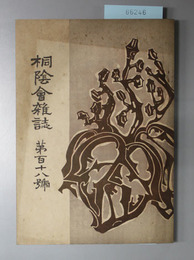 66246
桐陰會雜誌
第百十八號